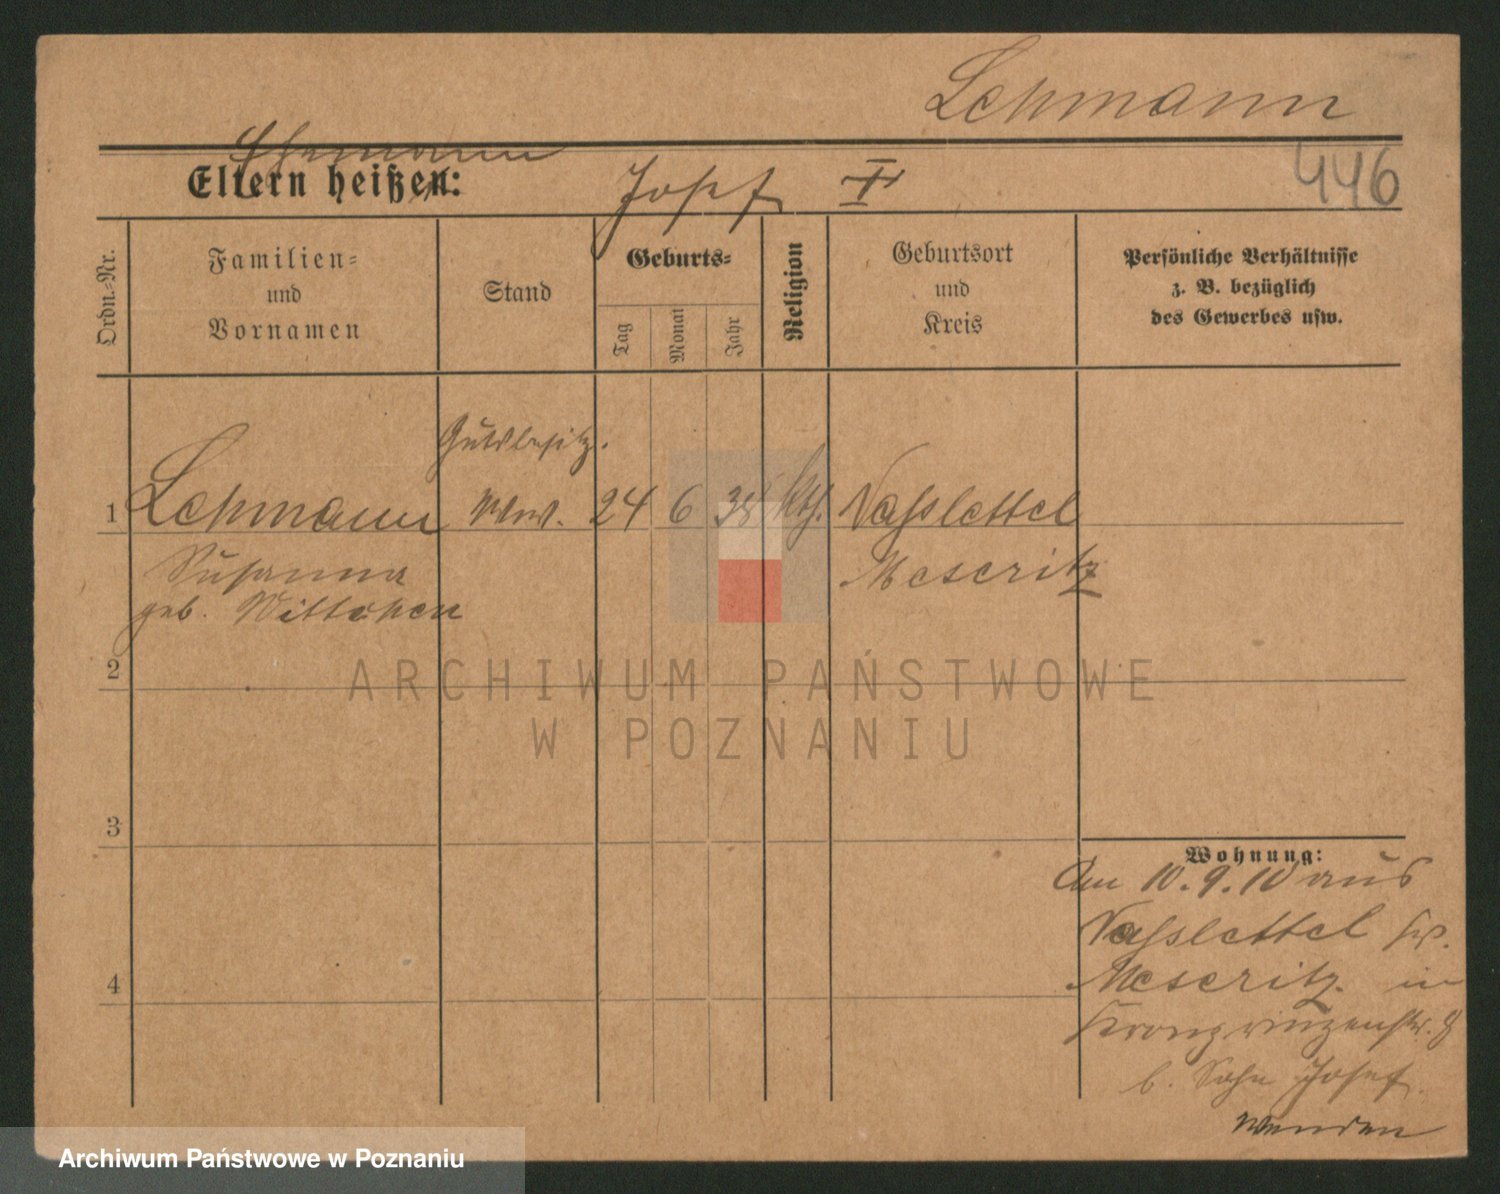 Lehmann
Ehemann
Eltern heißen: Josef
446
Ordn.-Nr.
Familien-
und
Vornamen
Stand
Geburts-
Tag
Monat
Jahr
Religion
Geburtsort
und
Kreis
Persönliche Verhältnisse
z. B. bezüglich
des Gewerbes usw.
Gutsbesitz.
1 Lehmann Wwe. 24 6 38 kth. Naßlettel
Susanna Meseritz
geb. Wittchen
2
3
4
Wohnung:
Am 10.9.10 aus
Naßlettel Krs.
Meseritz in
Kronprinzenstr. 8
b. Sohn Josef
Wenden
ARCHIWUM PAŃSTWOWE
W POZNANIU
Archiwum Państwowe w Poznaniu